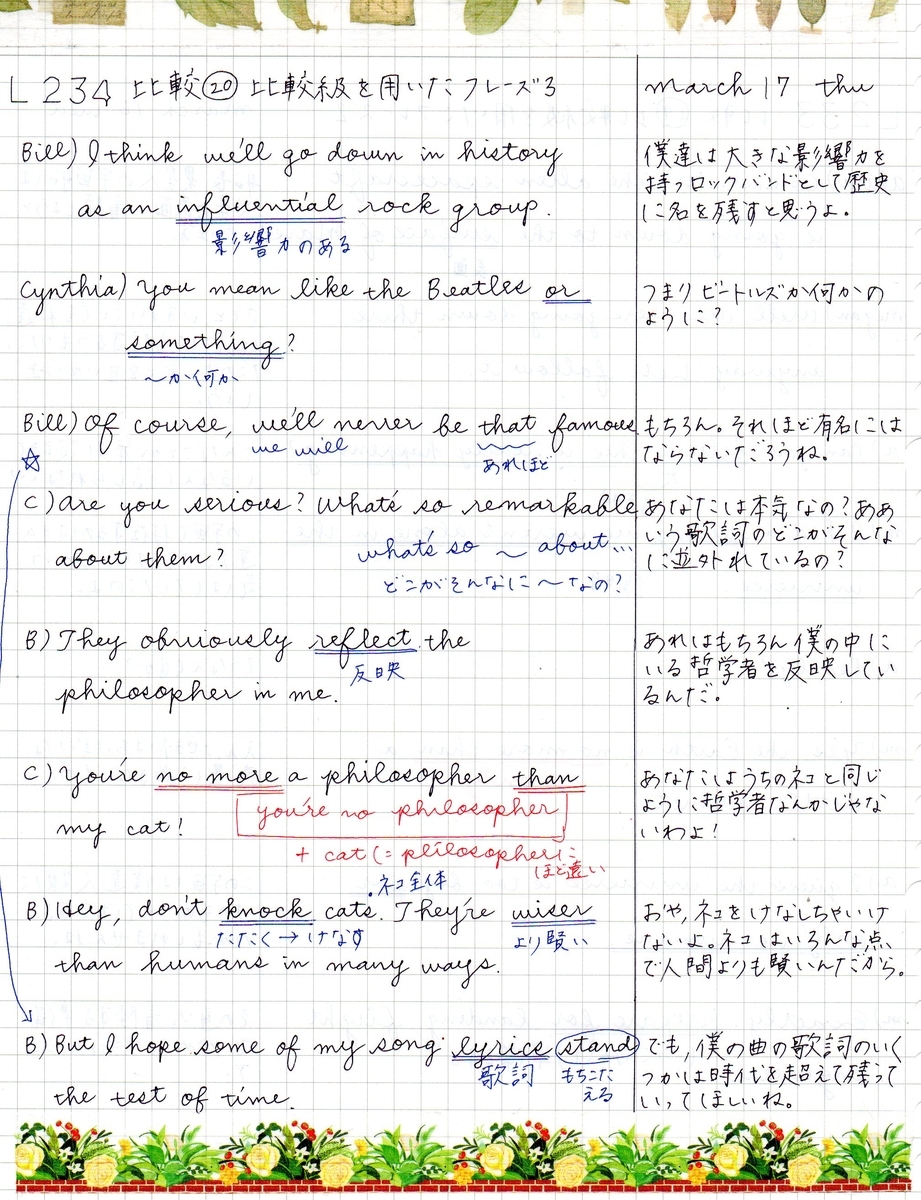 L234 比較⑳ 比較級を用いたフレーズ3
march 17 thu
Bill) I think we'll go down in history
as an influential rock group.
影響力のある
僕達は大きな影響力を
持つロックバンドとして歴史
に名を残すと思うよ。
Cynthia) You mean like the Beatles or
something?
〜か何か
つまりビートルズか何かの
ように?
Bill) Of course, we'll never be that famous.
we will
あれほど
もちろん。それほど有名には
ならないだろうね。
☆
C) Are you serious? What's so remarkable
about them?
what's so 〜 about...
どこがそんなに〜なの?
あなたは本気なの?ああ
いう歌詞のどこがそんな
に並外れているの?
B) They obviously reflect the
反映
philosopher in me.
あれはもちろん僕の中に
いる哲学者を反映してい
るんだ。
C) You're no more a philosopher than
my cat!
you're no philosopher
+ cat (= plilosopherに
ほど遠い
あなたはうちのネコと同じ
ように哲学者なんかじゃな
いわよ!
.ネコ全体
B) Hey, don't knock cats. They're wiser
たたく→けなす
より賢い
than humans in many ways.
おや,ネコをけなしちゃいけ
ないよ。ネコはいろんな点
で人間よりも賢いんだから。
B) But I hope some of my song lyrics stand
歌詞
もちこた
える
the test of time.
でも,僕の曲の歌詞のいく
つかは時代を超えて残って
いってほしいね。